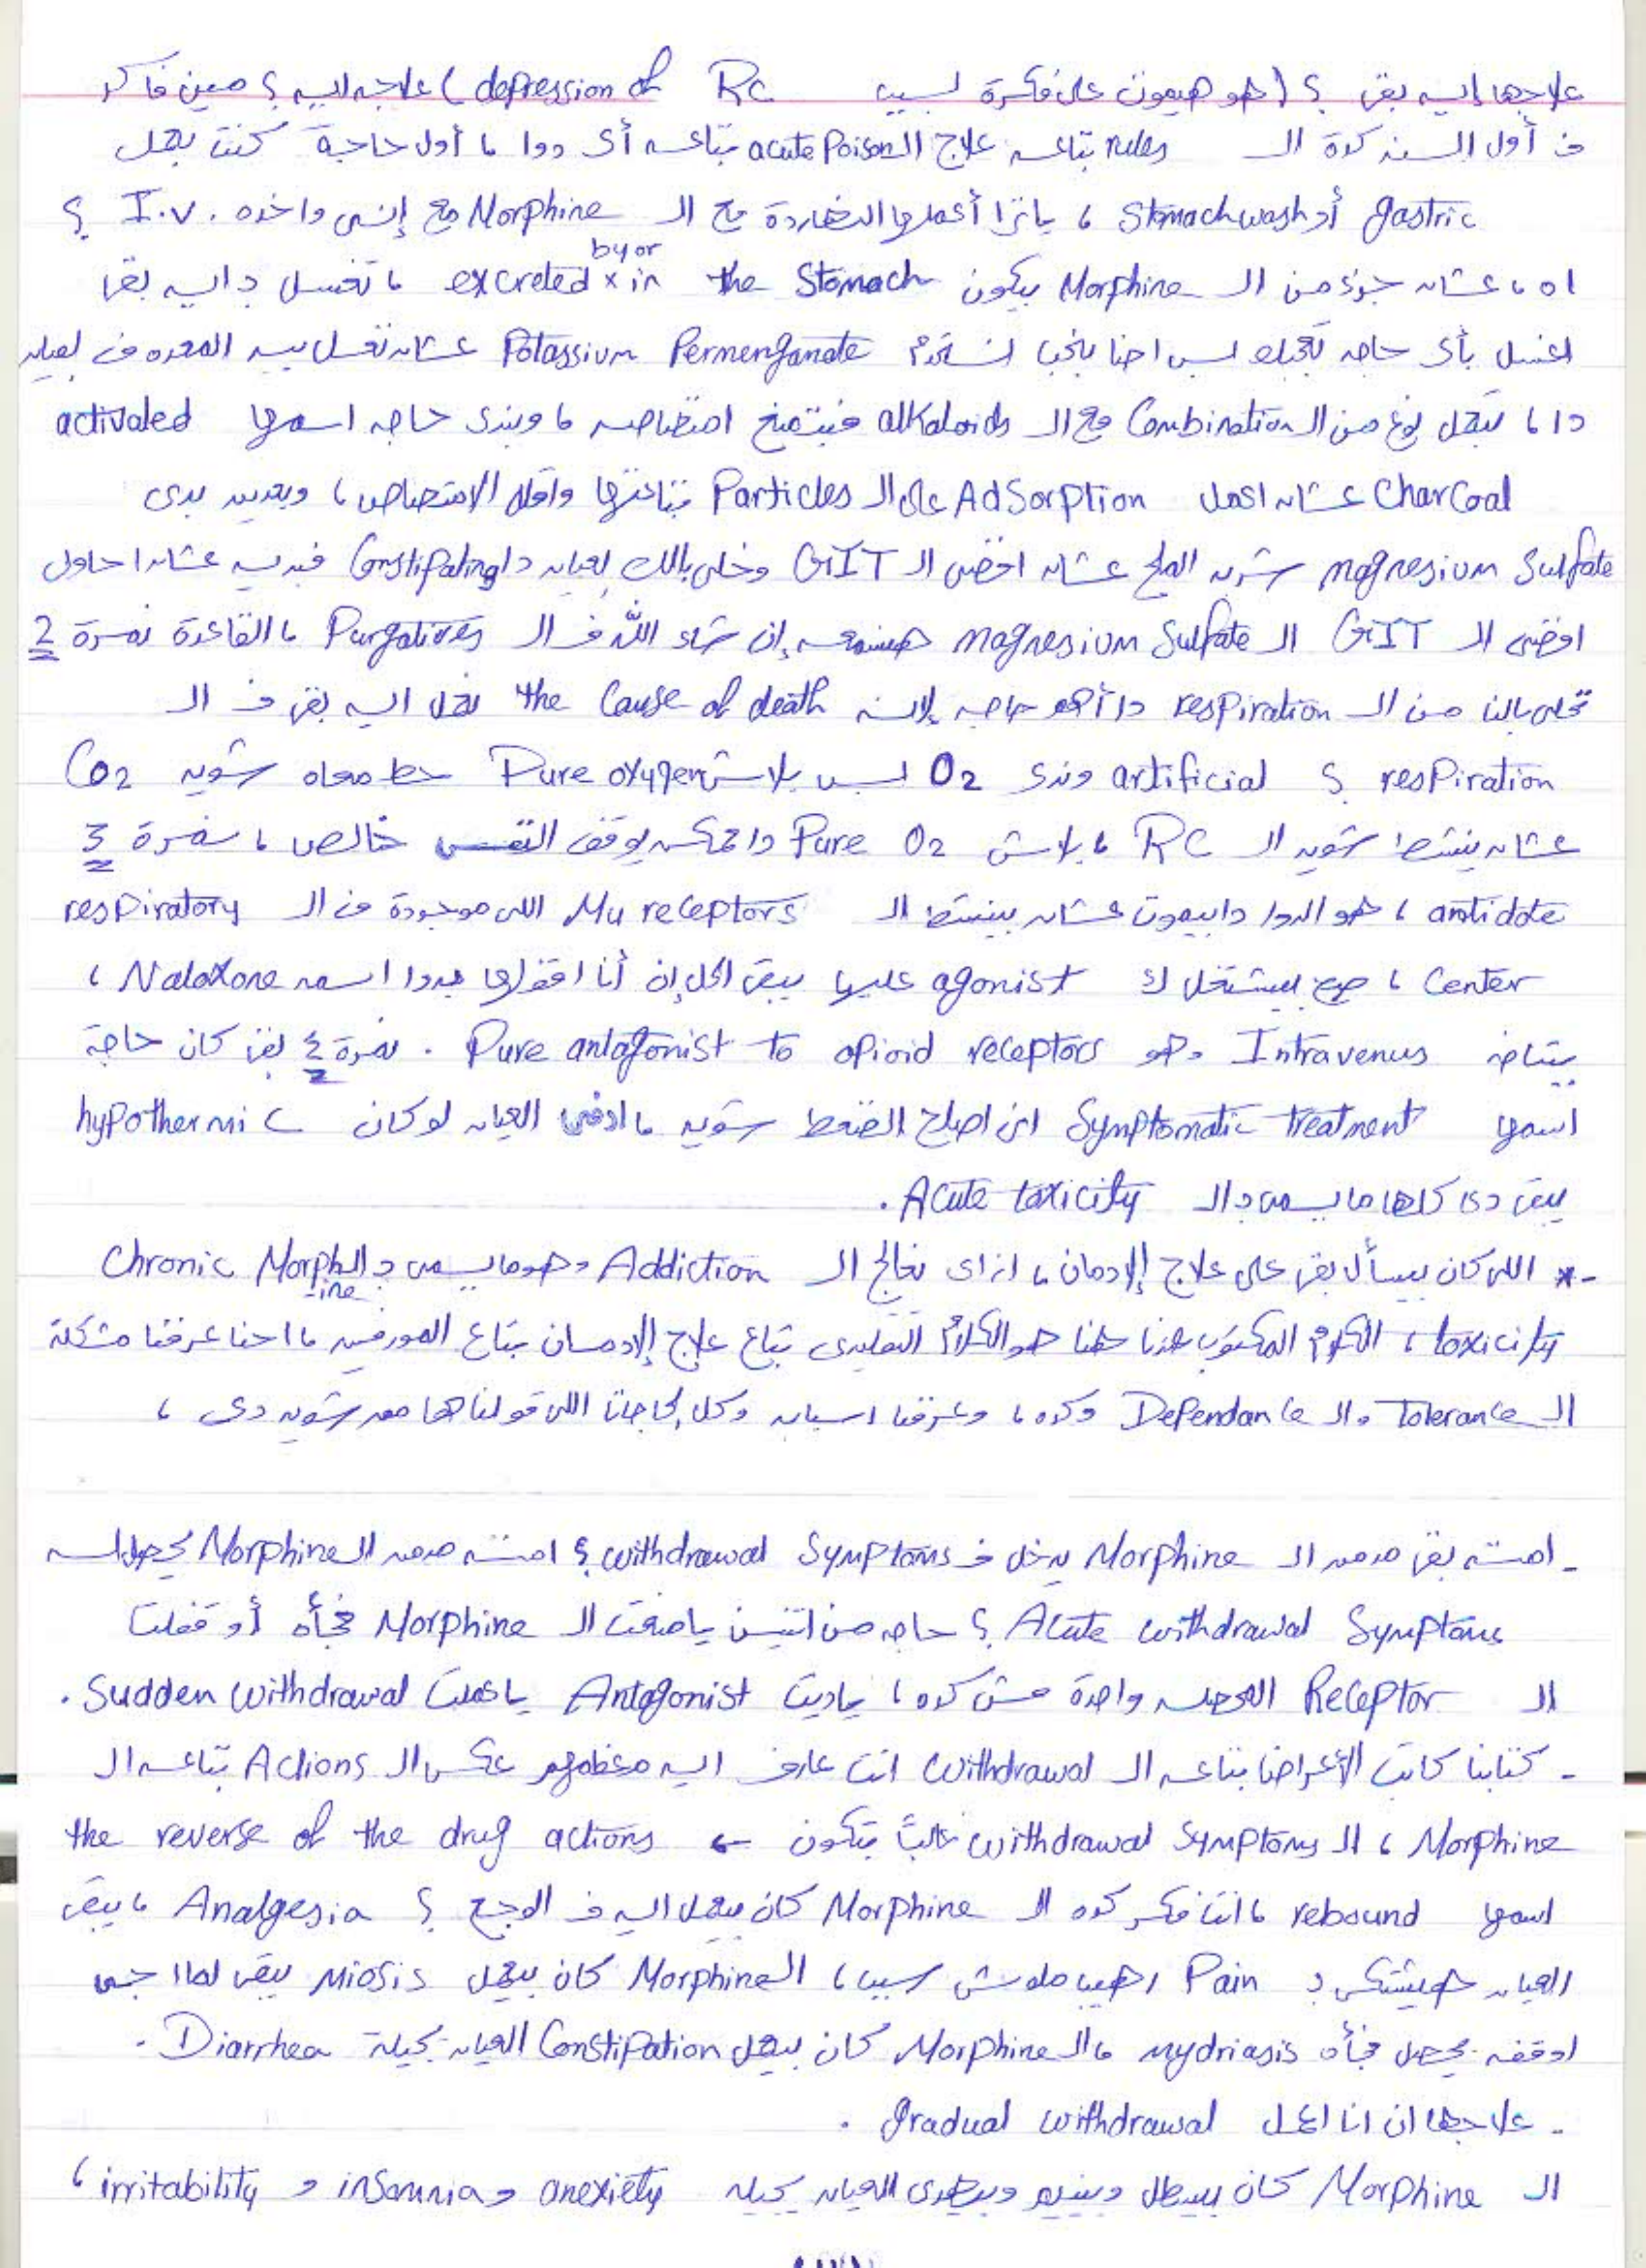 علاجها إيه بقى ؟ (هو هيموت على فكرة لسبب depression of RC) علاجه إيه ؟ مين فاكر
ف أول السنه كدة الـ rules بتاعة علاج الـ acute Poison بتاعه أى دوا ، أول حاجة كنت بعمل
gastric أو Stomach wash ، ياترا أعملها النهاردة مع الـ Morphine مع إنى واخده I.V. ؟
اه ، عشان جزء من الـ Morphine بيكون excreted by or in the Stomach ، تغسل بـ إيه بقى
اغسل بأى حاجه تعجبك بس احنا بنحب نستخدم Potassium Permenganate عشان نغسل بيه المعده ف العيان
دا ، بتعمل نوع من الـ Combination مع الـ alkaloids فبتمنع امتصاصه ، وبندى حاجه اسمها activated
CharCoal عشان اعمل AdSorption على الـ Particles بتاعتها واقلل الامتصاص ، وبعدين بدى
magnesium Sulfate شوية الملح عشان افضى الـ GIT وخلى بالك العيان دا Constipating فبديه عشان احاول
افضى الـ GIT الـ magnesium Sulfate هيسمعه إن شاء الله ف الـ Purgatives ، القاعدة نمرة 2
تخلى بالنا من الـ respiration دا أهم حاجه لإنه the Cause of death نعمل ايه بقى ف الـ
respiration ؟ artificial وندى O2 بس بلاش Pure oxygen حط معاه شوية CO2
عشان ينشط شوية الـ RC ، بلاش Pure O2 دا ممكن يوقف التنفس خالص ، نمرة 3
antidote ، هو الدوا دا بيموت عشان بينشط الـ Mu receptors اللى موجودة ف الـ respiratory
Center ، صح بيشتغل ك agonist عليها يبقى الحل إن أنا اقفلها بدوا اسمه Naloxone ،
بيتاخد Intravenus وهو Pure antagonist to opioid receptors . نمرة ٤ بقى كان حاجة
اسمها Symptomatic treatment انى اصلح الضغط شوية ، ادفى العيان لو كان hypothermic
يبقى دى كلها ما يسمى بـ الـ Acute toxicity .
-* اللى كان بيسأل بقى على علاج الإدمان ، ازاى نعالج الـ Addiction وهو ما يسمى بـ الـ Chronic Morphine
toxicity ، الكلام المكتوب عندنا هنا هو الكلام التقليدى بتاع علاج الإدمان بتاع المورفين ، احنا عرفنا مشكلة
الـ Tolerance والـ Dependance وكده ، وعرفنا اسبابه وكل الحاجات اللى قولناها من شوية دى ،
- امته بقى مدمن الـ Morphine يدخل ف withdrawal Symptoms ؟ امته مدمن الـ Morphine يحصله
Acute withdrawal Symptoms ؟ حاجه من اتنين يا منعت الـ Morphine فجأه أو قفلت
الـ Receptor المحصله واحدة مش كده ، يا ديت Antagonist يا عملت Sudden withdrawal .
- كتابنا كاتب الأعراض بتاعه الـ withdrawal انت عارف ايه معظمهم عكس الـ Actions بتاعه الـ
Morphine ، الـ withdrawal Symptoms غالباً بتكون ← the reverse of the drug actions
اسمها rebound ، انت فكر كده الـ Morphine كان بيعمل ايه ف الوجع ؟ Analgesia ، يبقى
العيان هيشتكى بـ Pain رهيب ملوش سبب ، الـ Morphine كان بيعمل miosis يبقى لما اجى
اوقفه يحصل فجأه mydriasis ، الـ Morphine كان بيعمل Constipation العيان يجيلة Diarrhea .
- علاجها ان انا اعمل gradual withdrawal .
الـ Morphine كان بيسطل وبينيم وبيهدى العيان يجيله anexiety و insomnia و irritability ،